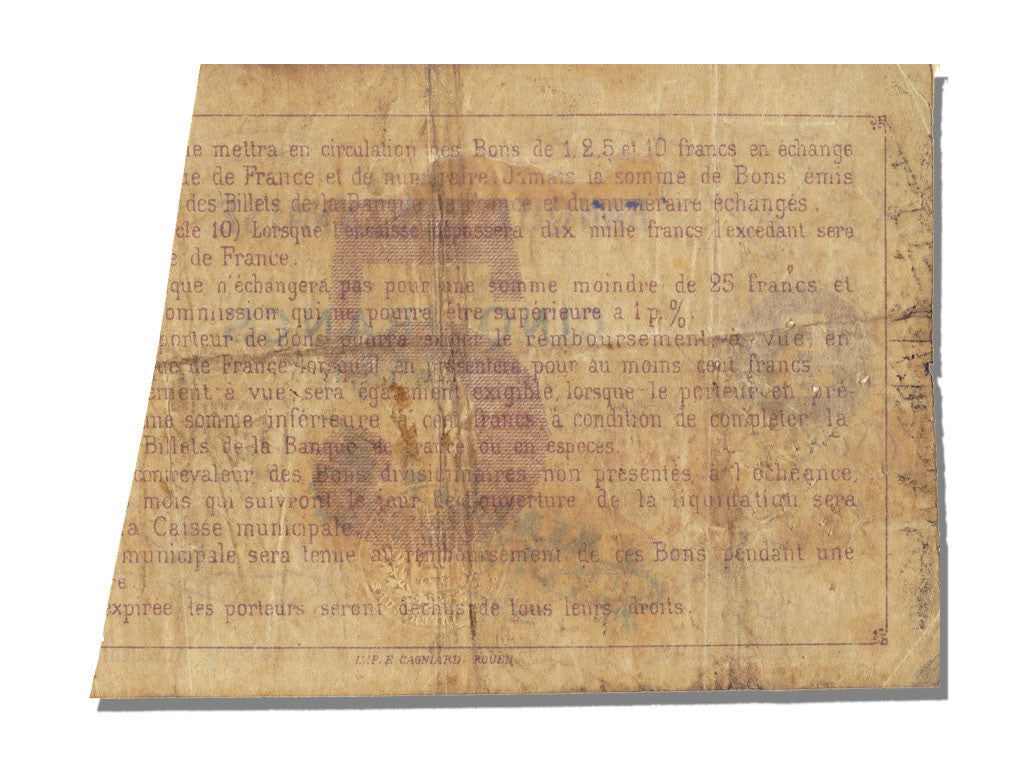 ie mettra en circulation des Bons de 1, 2, 5 et 10 francs en échange
ue de France et de numéraire. Jamais la somme de Bons émis
des Billets de la Banque de France et du numéraire échangés.
cle 10) Lorsque l'encaisse dépassera dix mille francs l'excédant sera
e de France.
que n'échangera pas pour une somme moindre de 25 francs et
ommission qui ne pourra être supérieure a 1 p. %.
porteur de Bons pourra exiger le remboursement, à vue, en
ue de France lorsqu'il en présentera pour au moins cent francs.
ement a vue sera également exigible, lorsque le porteur en pré-
une somme inférieure à cent francs, à condition de compléter la
Billets de la Banque de France ou en espèces.
contrevaleur des Bons divisionnaires non présentés à l'échéance,
mois qui suivront le jour de l'ouverture de la liquidation sera
a Caisse municipale.
municipale sera tenue au remboursement de ces Bons pendant une
re.
expirée les porteurs seront déchus de tous leurs droits.
IMP. E. CAGNIARD. ROUEN.